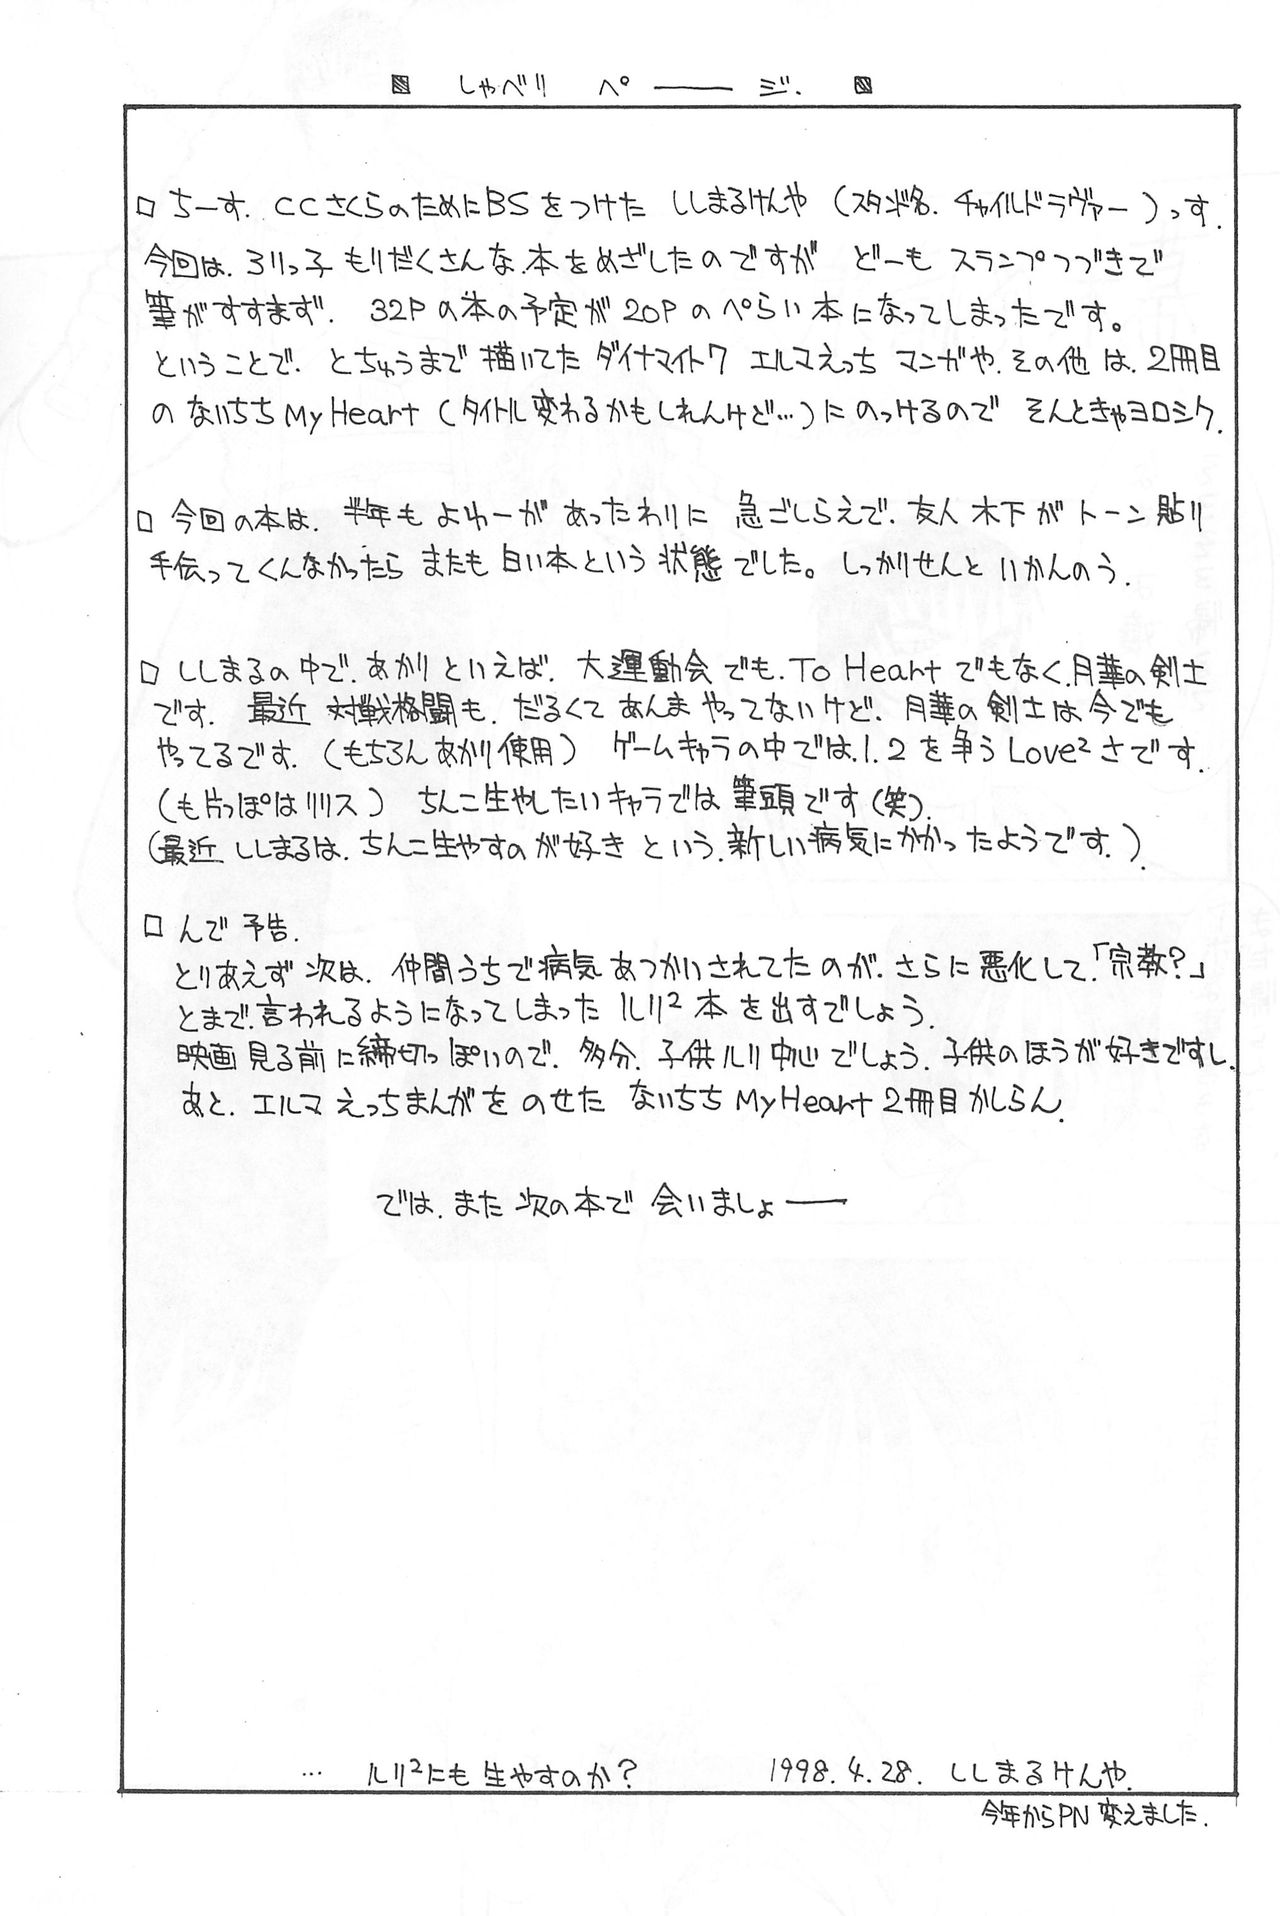 しゃべり ペ――ジ.
□ ちーす. CCさくらのためにBSをつけた ししまるけんや (スタンド名. チャイルドラヴァー)っす.
今回は. ろりっ子 もりだくさんな.本をめざしたのですが どーも スランプつづきで
筆がすすまず. 32Pの本の予定が20Pのぺらい本になってしまったです。
ということで. とちゅうまで描いてた ダイナマイト7 エルマえっち マンガや.その他は.2冊目
のないちち My Heart (タイトル変わるかもしれんけど…)にのっけるので そんときゃヨロシク.
□ 今回の本は. 半年もよゆーがあったわりに 急ごしらえで.友人 木下がトーン貼り
手伝ってくんなかったら またも白い本という状態でした。しっかりせんと いかんのう.
□ ししまるの中で.あかりといえば. 大運動会でも.To Heartでもなく.月華の剣士
です. 最近 対戦格闘も. だるくて あんま やってないけど. 月華の剣士は今でも
やってるです. (もちろんあかり使用) ゲームキャラの中では.1.2を争うLove²さです.
(も片っぽはリリス) ちんこ生やしたいキャラでは筆頭です(笑).
(最近 ししまるは.ちんこ生やすのが好き という.新しい病気にかかったようです.).
□ んで 予告.
とりあえず次は. 仲間うちで病気あつかいされてたのが.さらに悪化して.「宗教?」
とまで.言われるようになってしまった ルリ²本を出すでしょう.
映画見る前に締切っぽいので. 多分. 子供ルリ中心でしょう. 子供のほうが好きですし.
あと. エルマ えっちまんがを のせた ないちち My Heart 2冊目かしらん.
では. また 次の本で 会いましょ――
… ルリ²にも 生やすのか? 1998.4.28. ししまるけんや.
今年からPN変えました.